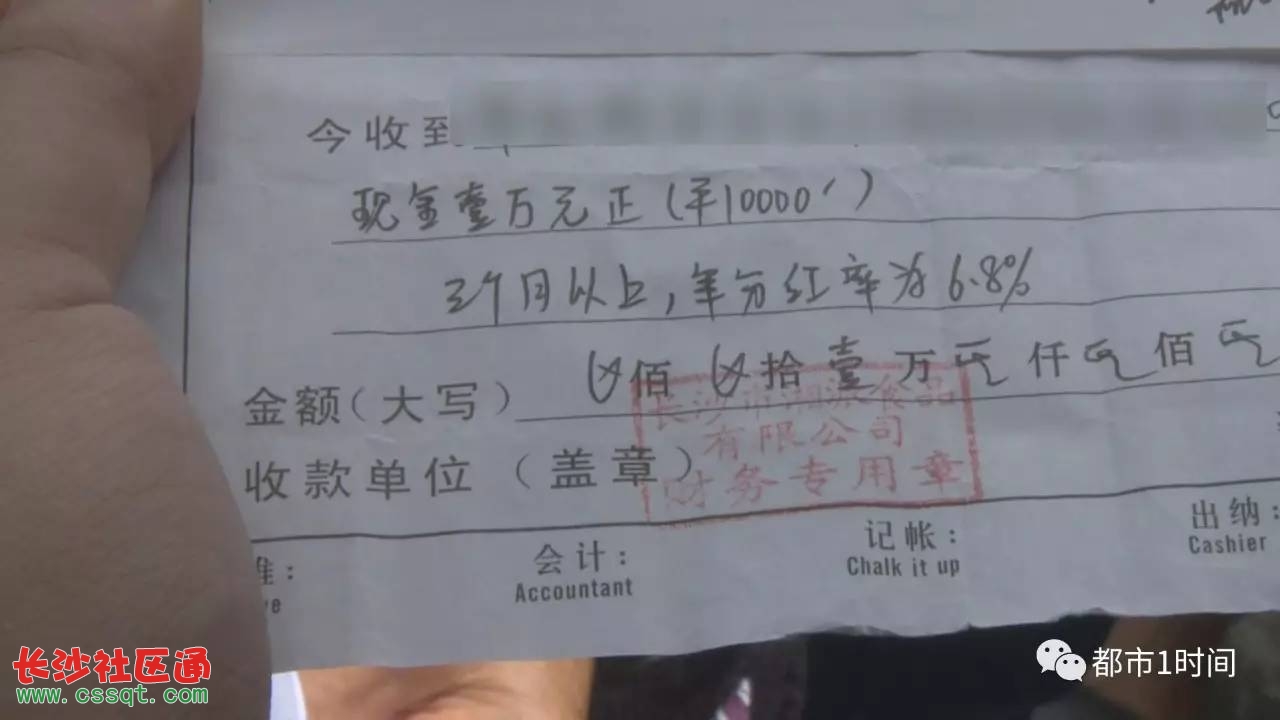 今收到
现金壹万元正(¥10000)
三个月以上,年分红率为6.8%
金额(大写) 佰 拾壹万 仟 佰
长沙市湘派食品
有限公司
财务专用章
收款单位(盖章)
准: 会计: 记帐: 出纳:
ve Accountant Chalk it up Cashier
长沙社区通
www.cssqt.com
都市1时间